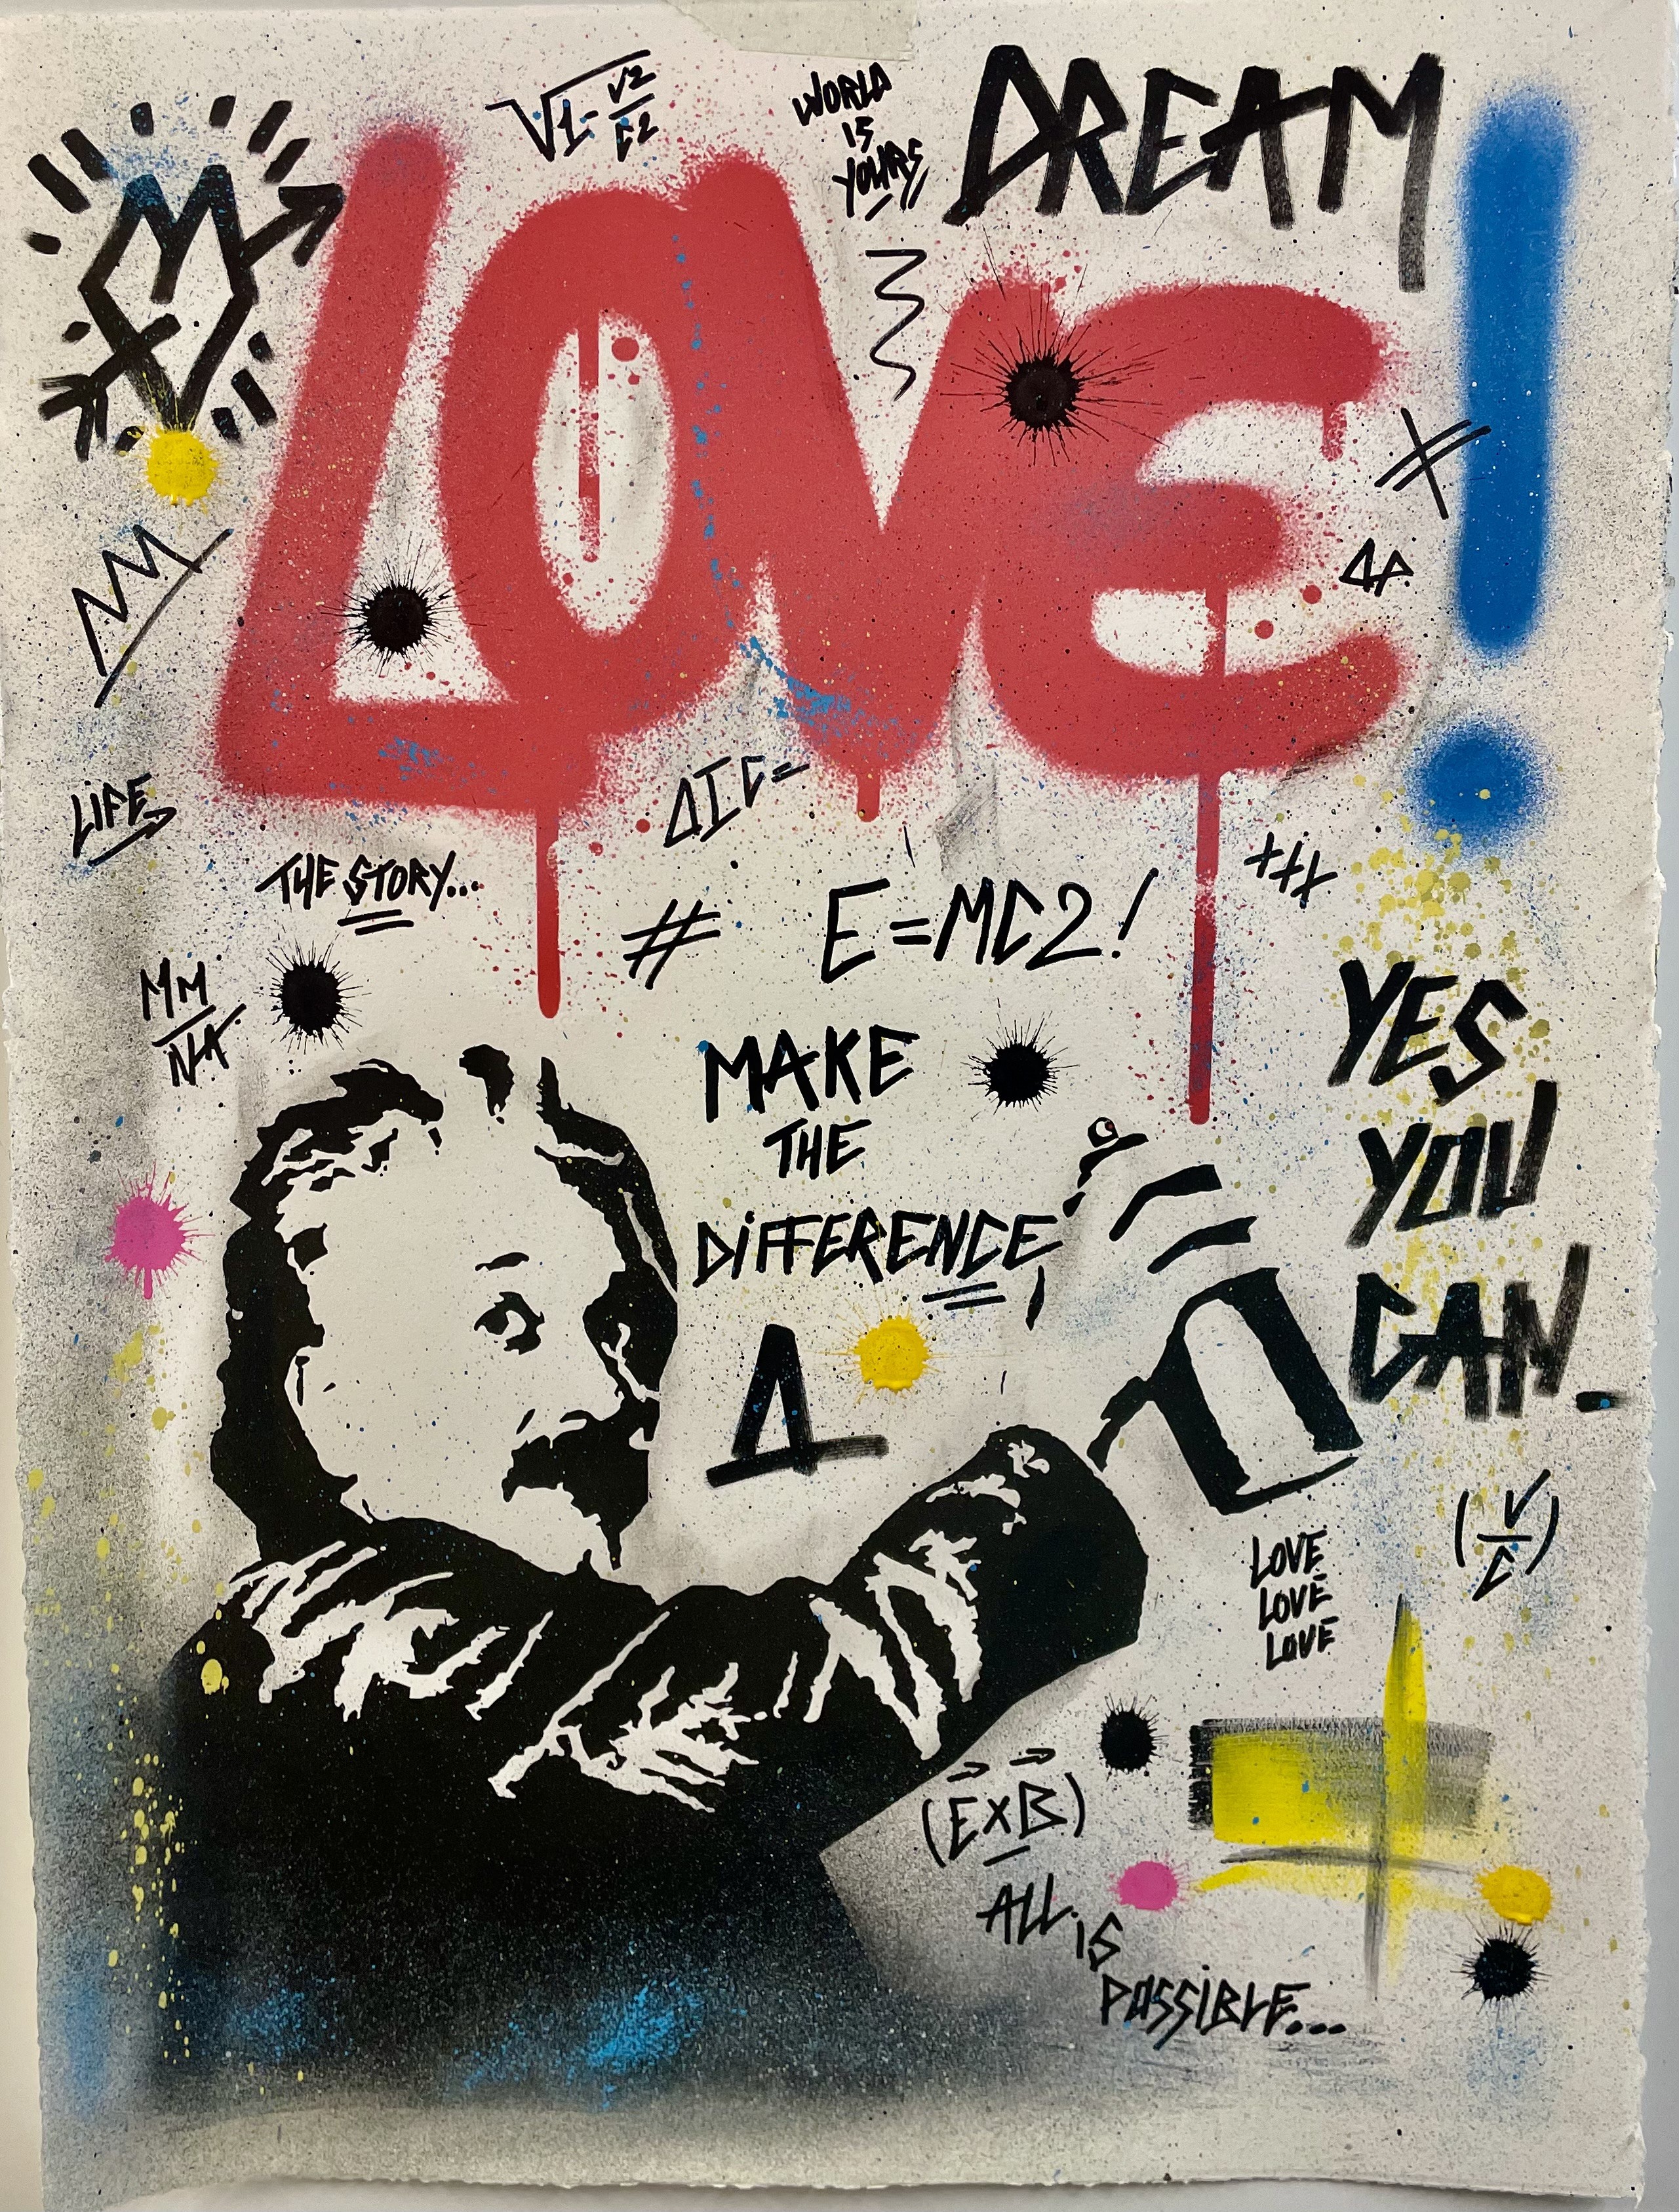 √1-v2/c2
WORLD
IS
YOURS
DREAM
LOVE!
ΔP.
LIFE
ΔIC=
THE STORY...
+++
# E=MC2!
MM
YES
YOU
CAN.
MAKE
THE
DIFFERENCE
Δ
(V/C)
LOVE
LOVE
LOVE
(E⃗xB⃗)
ALL IS
POSSIBLE...